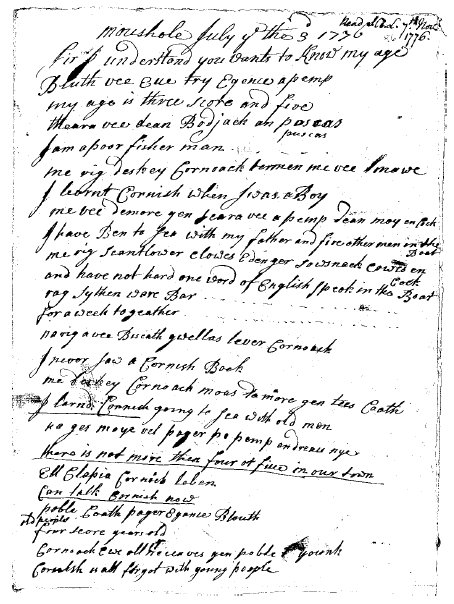 moushole July ye the 3d 1776
Sir I understand you wants to know my age
Bluth vee Eue try Egence a pemp
my age is three score and five
theara vee dean Bodjack an poscas
puscas
I am a poor fisher man
me rig deskey Cornoack termen me vee mawe
I learnt Cornish when I was a Boy
me vee demore gen seara vee a pemp dean moy en Cock
I have Ben to sea with my father and five other men in the Boat
me rig scantlower clowes Edenger sowsnack cowes en Cock
and have not hard one word of English speek in the Boat
rag sythen ware Bar
for a week together
na rig a vee Biscath gwellas lever Cornoack
I never saw a Cornish Book
me deskey Cornoack moas da more gen tees Coath
I larnd Cornish going to sea with old men
na ges moye vel pager po pemp en dreau nye
there is not more then four or five in our town
Ell Clapia Cornish leben
Can talk Cornish now
poble Coath pager Egance Blouth
old people four score years old
Cornoack Ewe all ne ceaves gen poble younk
Cornish is all forgot with young people